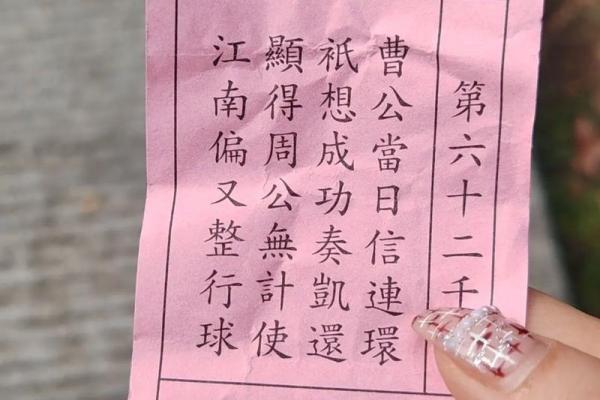 第六十二千
曹公當日信連環
衹想成功奏凱還
顯得周公無計使
江南偏又整行球